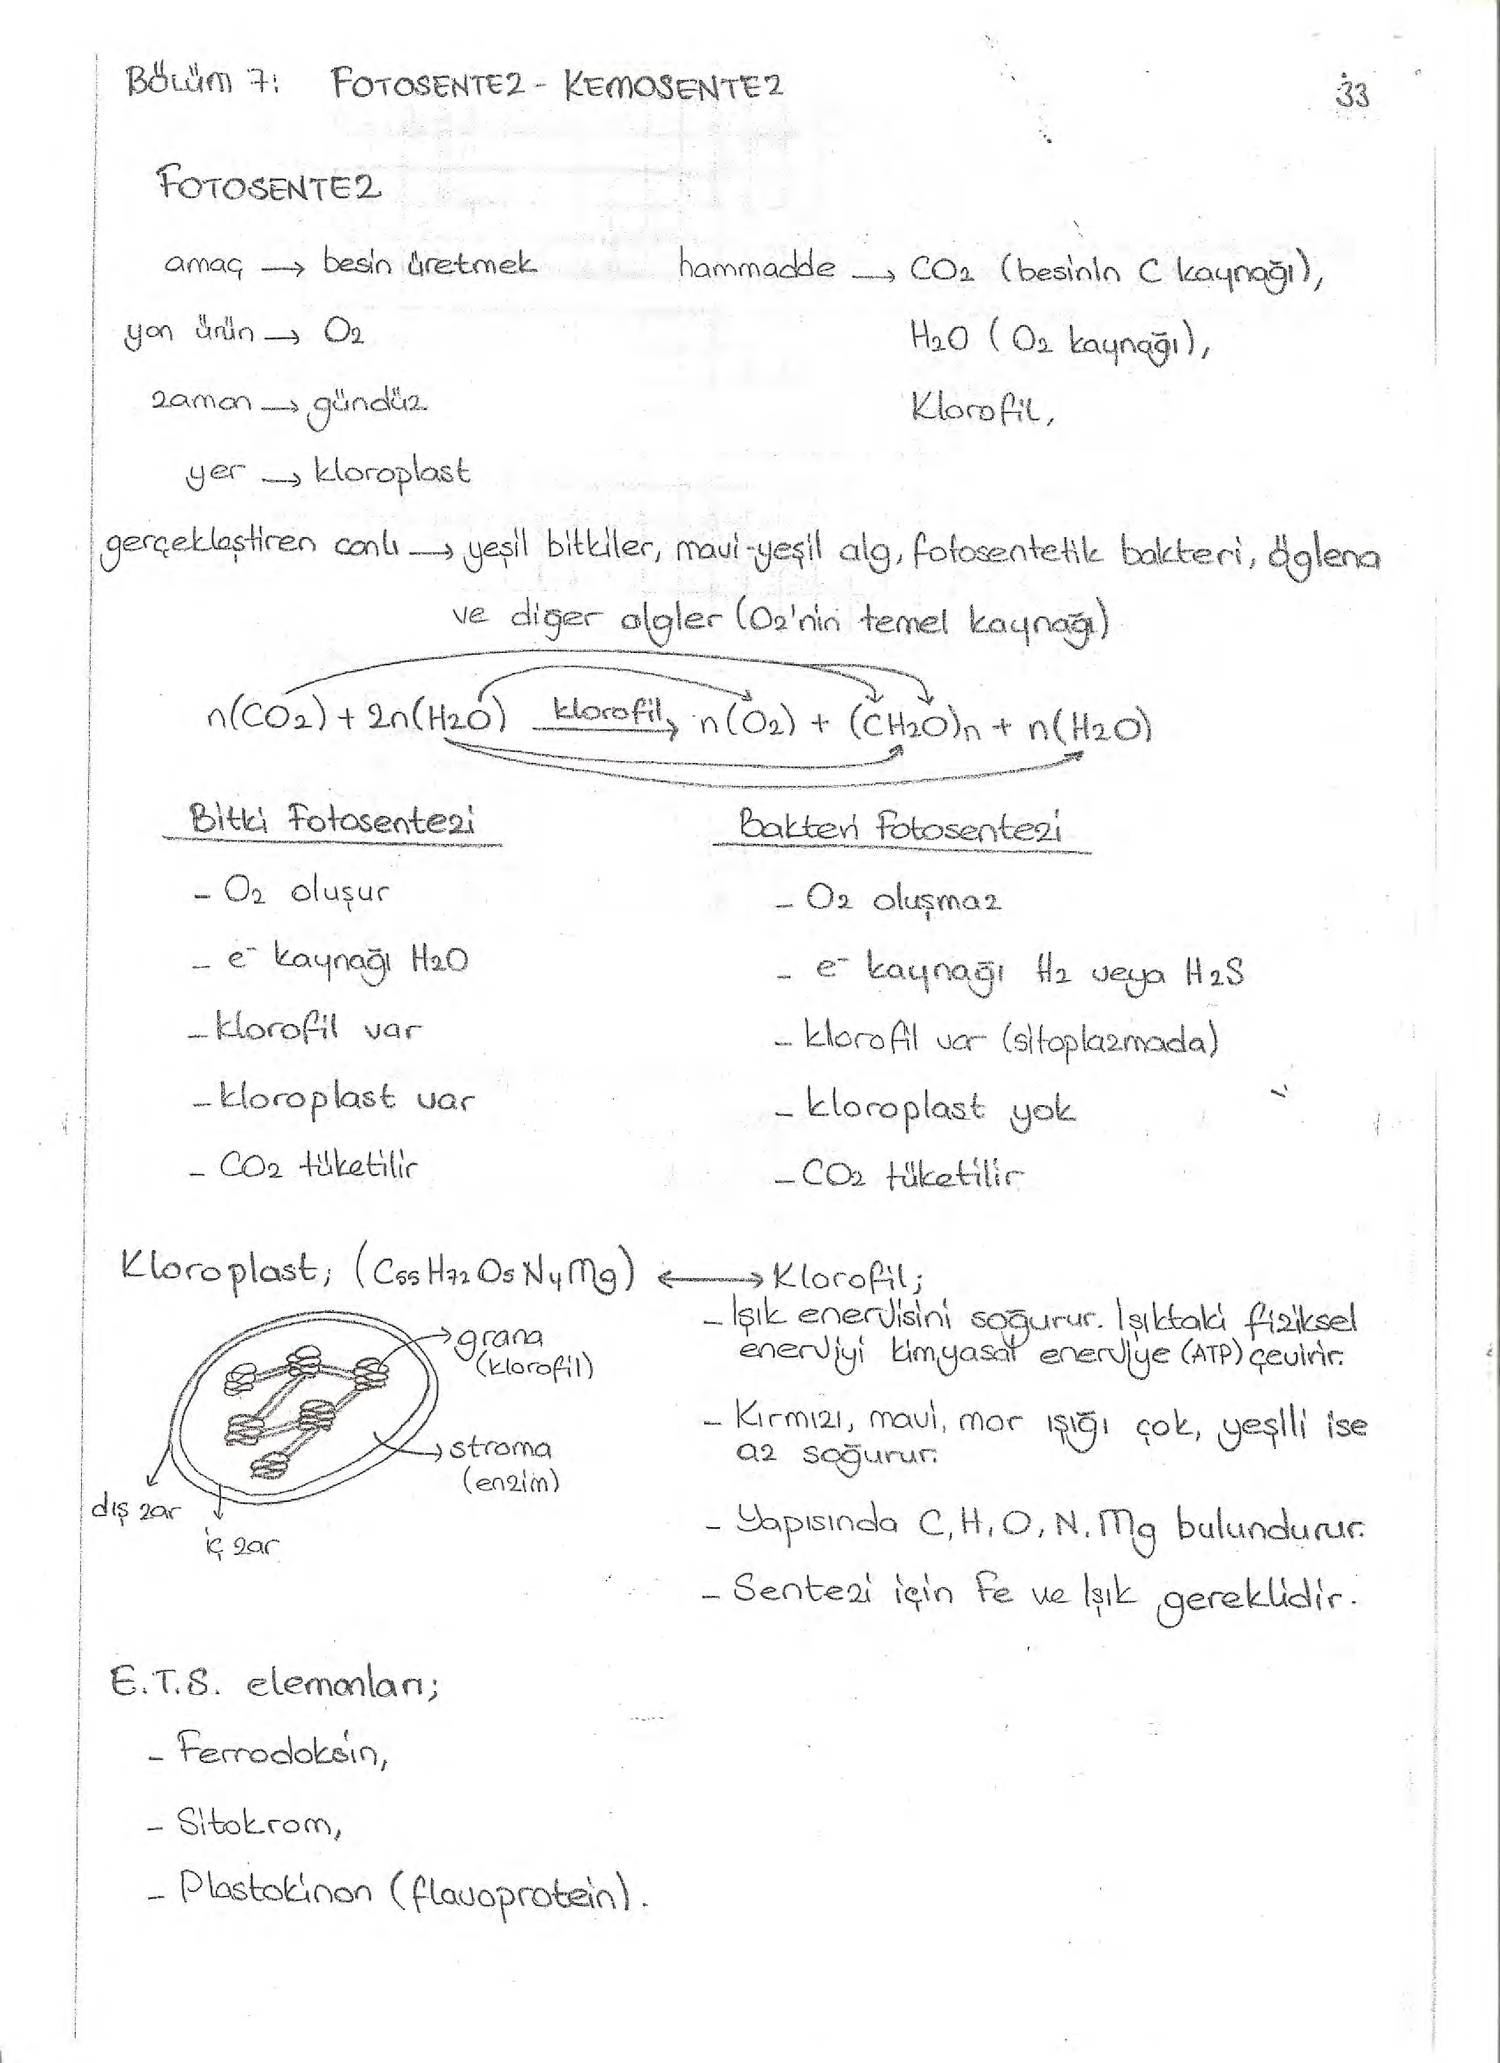 Bölüm 7: FOTOSENTEZ - KEMOSENTEZ
33
FOTOSENTEZ
amaç → besin üretmek
hammadde → CO2 (besinin C kaynağı),
yan ürün → O2
H2O (O2 kaynağı),
zaman → gündüz
Klorofil,
yer → kloroplast
gerçekleştiren canlı → yeşil bitkiler, mavi-yeşil alg, fotosentetik bakteri, öglena
ve diğer algler (O2'nin temel kaynağı)
n(CO2) + 2n(H2O) klorofil → n(O2) + (CH2O)n + n(H2O)
Bitki Fotosentezi
- O2 oluşur
- e⁻ kaynağı H2O
- klorofil var
- kloroplast var
- CO2 tüketilir
Bakteri Fotosentezi
- O2 oluşmaz
- e⁻ kaynağı H2 veya H2S
- klorofil var (sitoplazmada)
- kloroplast yok
- CO2 tüketilir
Kloroplast; (C55H72O5N4Mg) ↔ Klorofil;
grana
(klorofil)
stroma
(enzim)
dış zar
iç zar
- Işık enerjisini soğurur. Işıktaki fiziksel
enerjiyi kimyasal enerjiye (ATP) çevirir.
- Kırmızı, mavi, mor ışığı çok, yeşili ise
az soğurur.
- Yapısında C, H, O, N, Mg bulundurur.
- Sentezi için Fe ve Işık gereklidir.
E.T.S. elemanları;
- Ferrodoksin,
- Sitokrom,
- Plastokinon (flavoprotein).